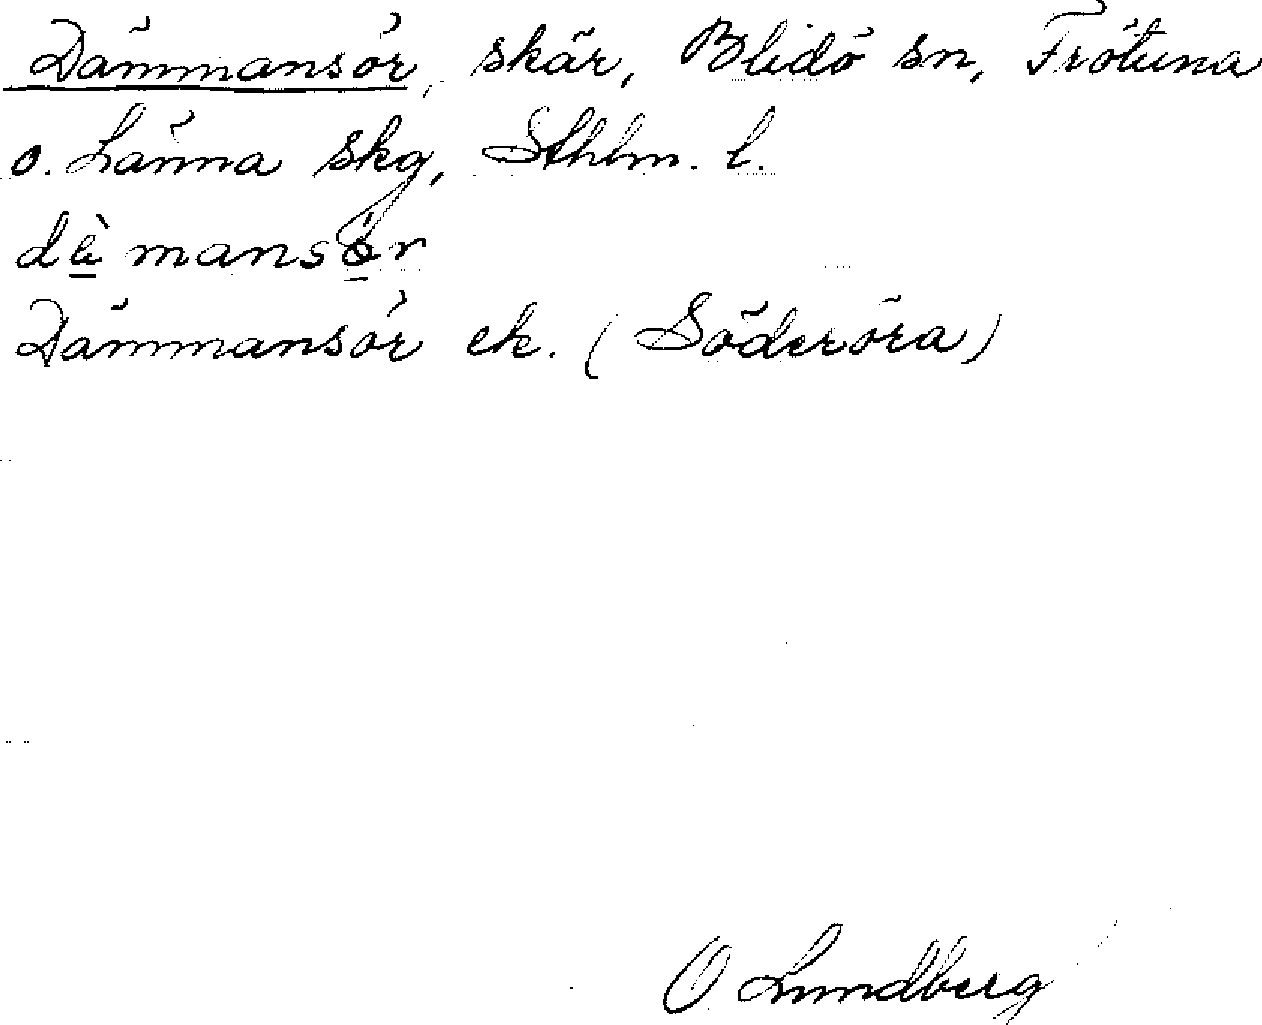 Dämmansör, skär, Blidö sn, Frötuna
o. Länna skg, Sthlm. l.
dä̀mansö̀r
Dämmansör ek. (Söderöra)
O Lundberg